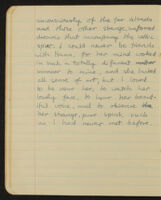 unconsciously of the far islands
and those other strange, unformed
dreams that accompany the celtic
spirit. I could never be friends
with Fiona, for her mind worked
in such a totally different
manner to mine, and she hated
all sense of art, but I loved
to be near her, to watch her
lovely face, to hear her beauti-
ful voice, and to observe the
her strange, pure spirit such
as I had never met before.